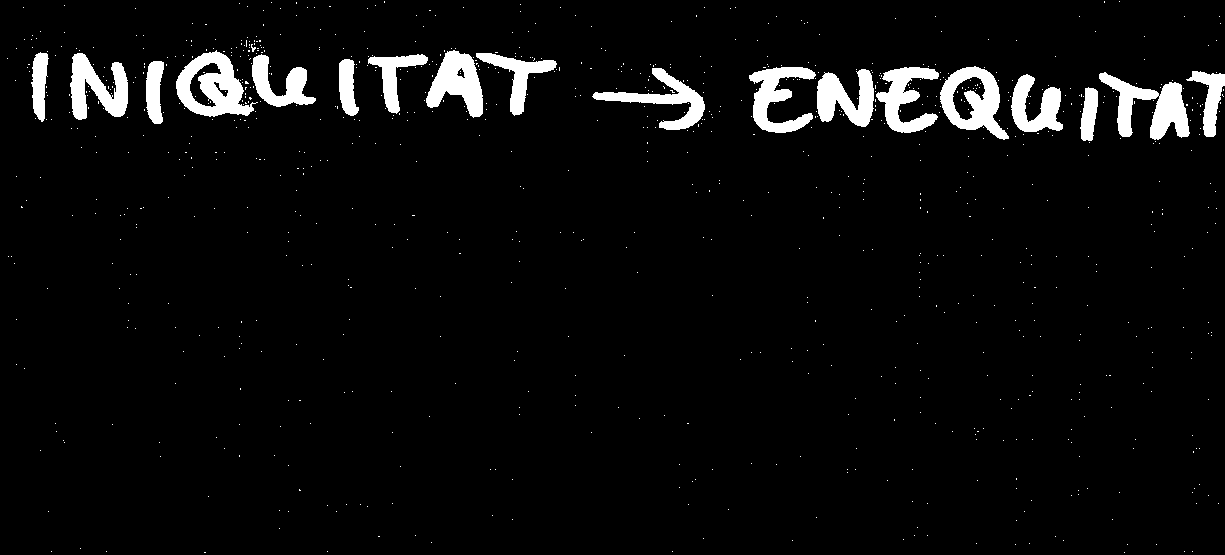 INIQUITAT → ENEQUITAT